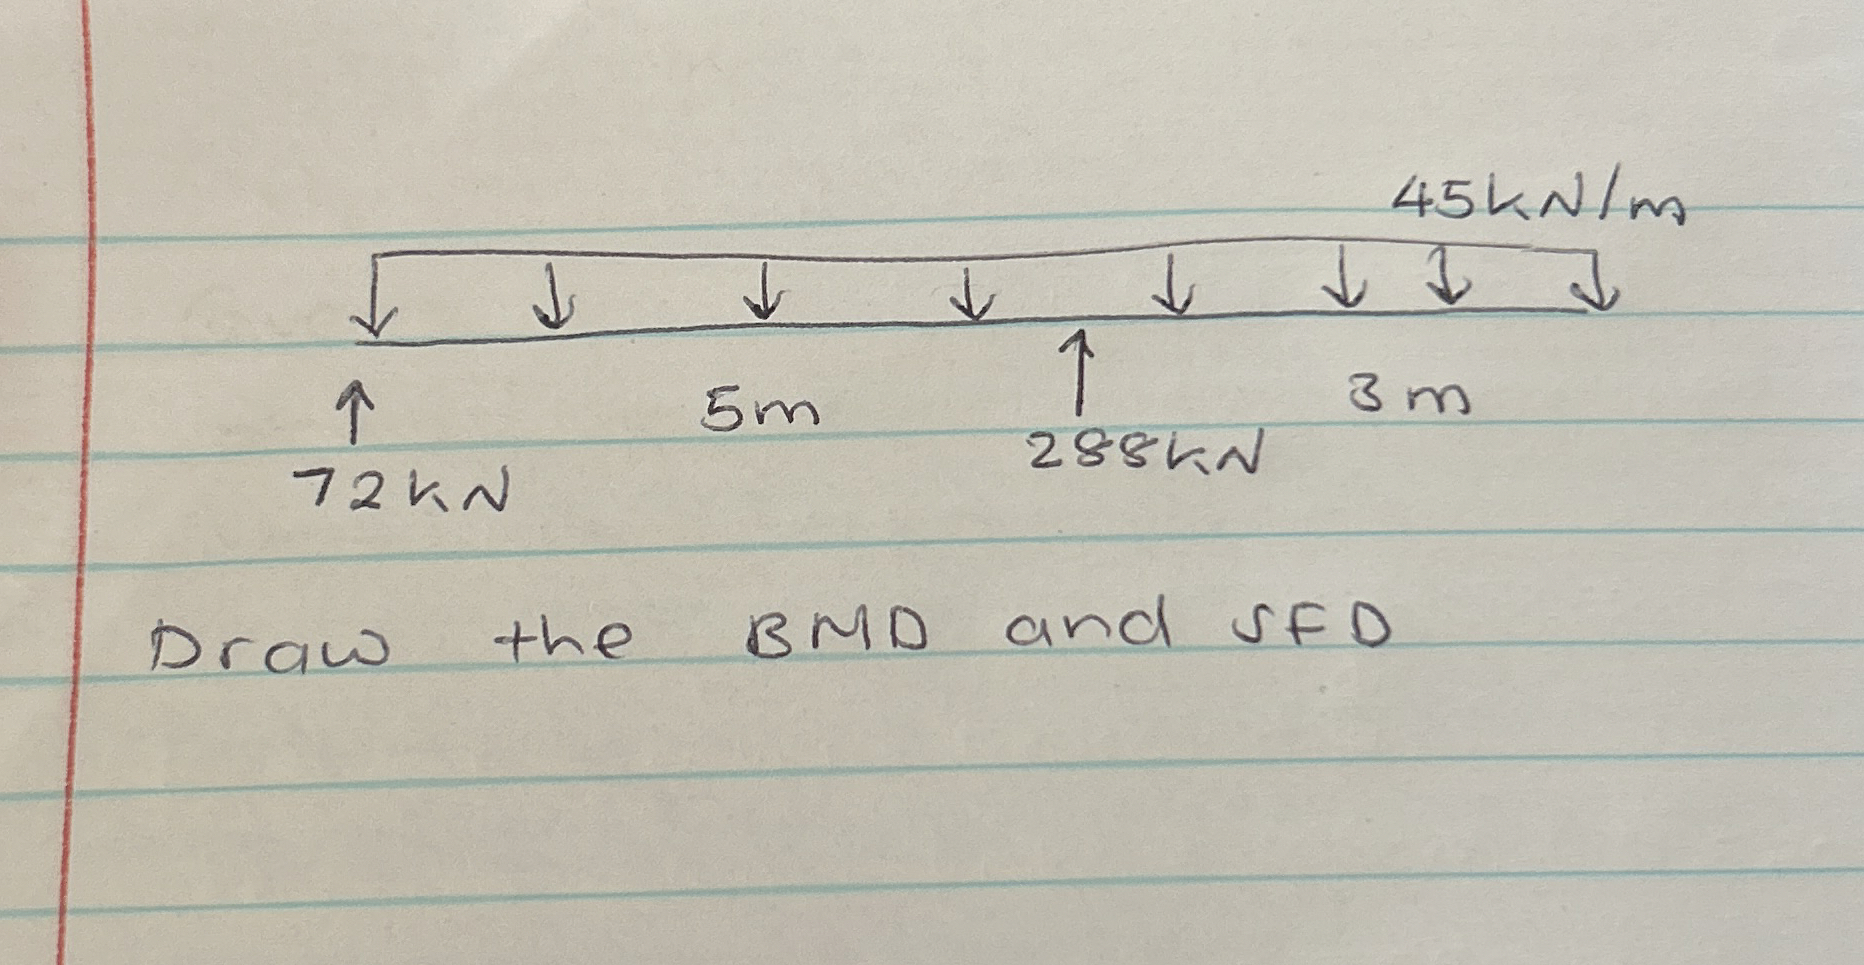 45kN/m
5m
3m
72kN
288kN
Draw the BMD and SFD